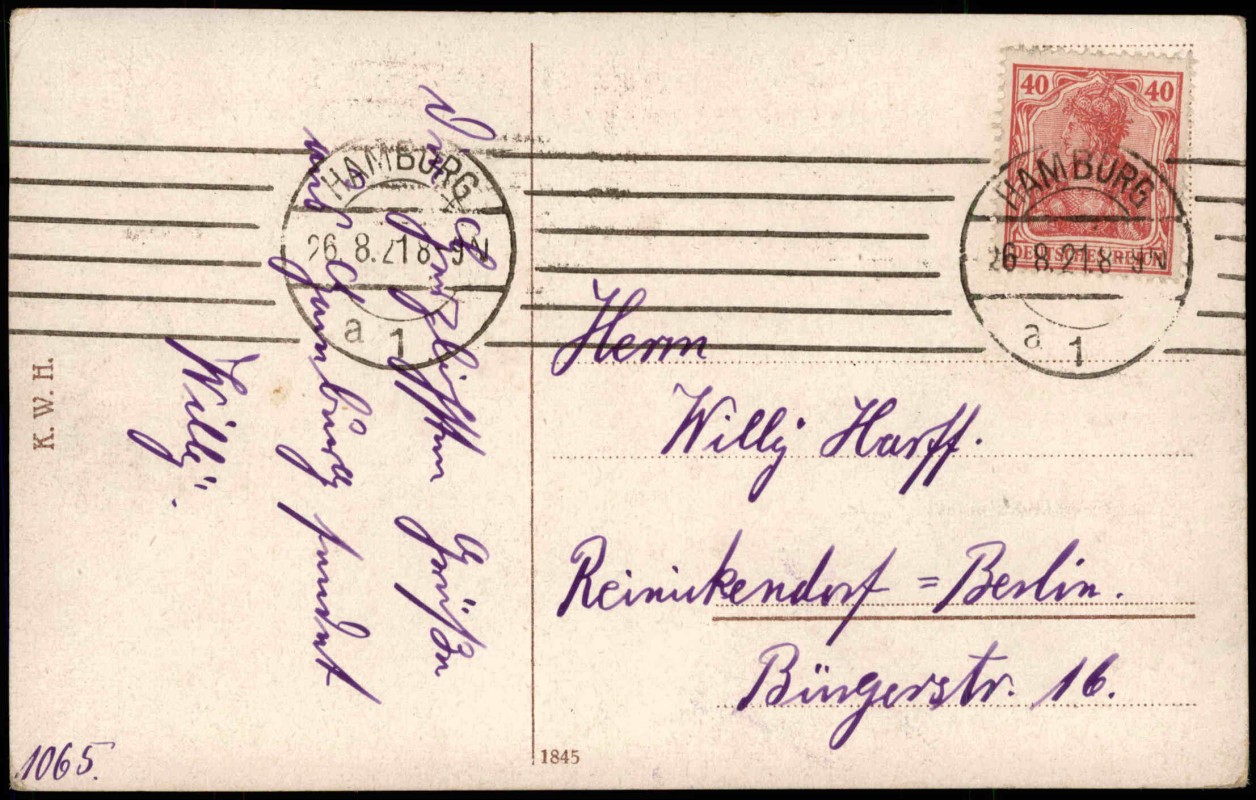 Die herzlichsten Grüße
aus Hamburg sendet
Willy.
HAMBURG
26.8.21 8-9 N
a 1
40 40
DEUTSCHES REICH
HAMBURG
26.8.21.8-9 N
a 1
Herrn
Willy Harff.
Reinickendorf = Berlin.
Bürgerstr. 16.
K. W. H.
1845
1065.